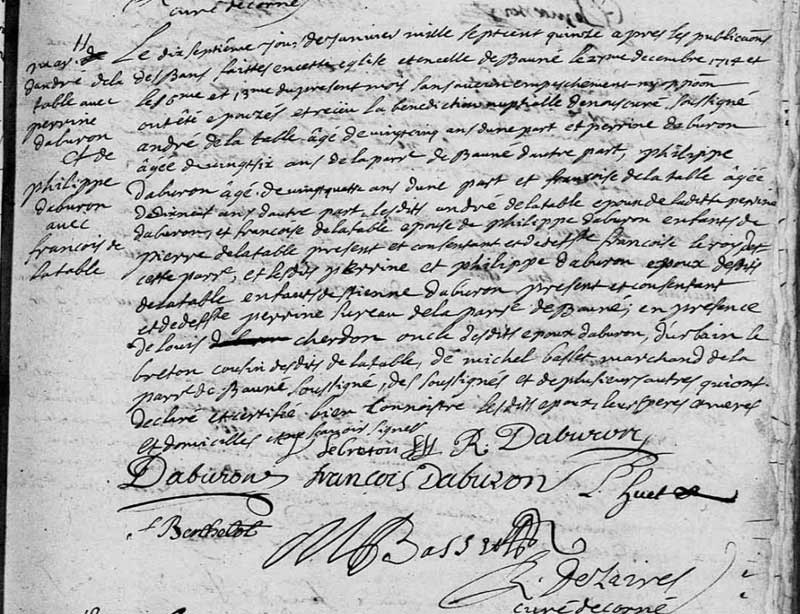 curé de corné
mar. d
dandré dela
table avec
perrine
daburon
Et de
philippe
daburon
avec
francois de
la table
Le dix septiéme jour de janvier mille sept cent quinze apres les publications
des Bans faittes en cette eglise et en celle de Bauné le 27me decembre 1714 et
les 6me et 13me du present mois sans aucun empeschement ny oppoon
ont été epouzés et recu la benediction nuptialle de nous curé soussigné
andré de la table âgé de vingt cinq ans dune part et perrine daburon
âgée de vingt six ans de la parse de Bauné dautre part, philippe
daburon âgé de vingt quatre ans dune part et françoise de la table âgée
ans dautre part, lesdits andré delatable epoux de laditte perrine
daburon, et francoise delatable epouse de philippe daburon enfants de
pierre delatable present et consentant et de deffte francoise le roy de
cette parse, et lesdits perrine et philippe daburon epoux desdits
delatable enfants de Etienne daburon present et consentant
et de deffte perrine bureau de la parse de Bauné; en presence
de Louis cherdon oncle desdits epoux daburon, d'urbain le
breton cousin desdits de la table, de michel basset marchand de la
parse de Bauné soussigné, des soussignés et de plusieurs autres qui ont
declaré et certifié bien connoistre lesdits epoux, leurs peres et meres
et domicilles et ne scavoir signer
Le breton R. Daburon
Daburon francois Daburon L. huet
Berthelot
M Basset
R. Delaires
curé de corné